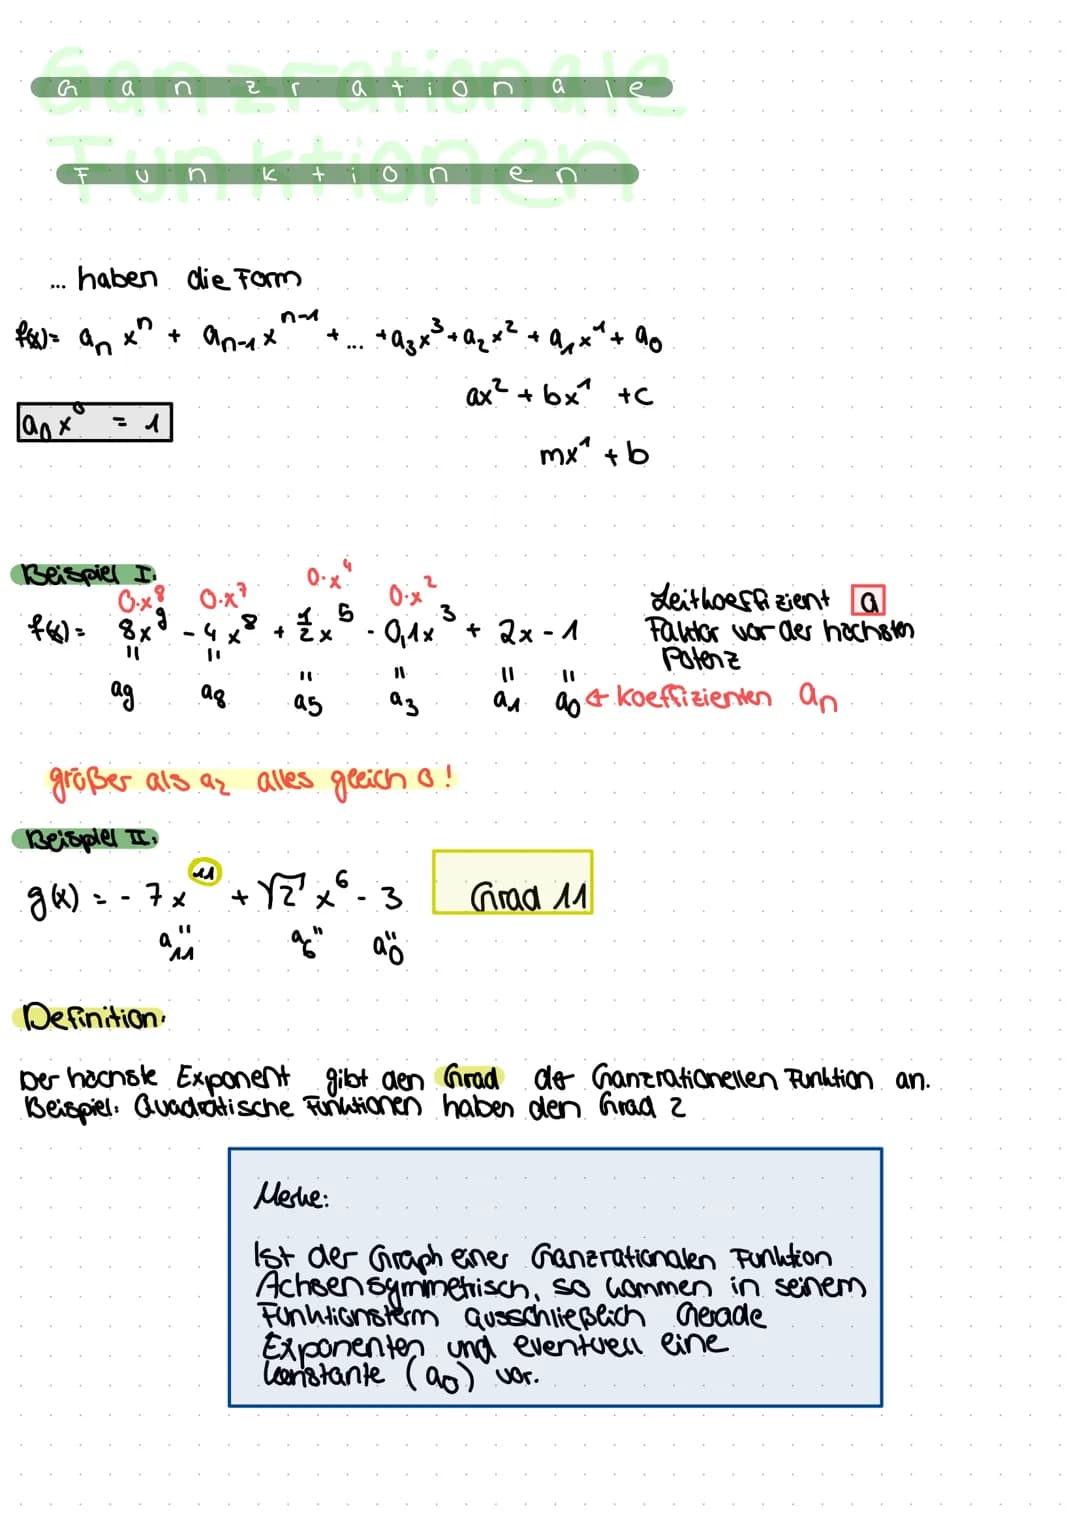 Ganzrationale
Funktionen
... haben die Form
f(x)= aₙ xⁿ + aₙ₋₁ x ⁿ⁻¹ + ... + a₃x³ + a₂x² + a₁x¹ + a₀
ax² + bx¹ + c
a₀x⁰ = 1
mx¹ + b
Beispiel I:
0·x⁸ 0·x⁷ 0·x⁴ 0·x²
f(x)= 8x⁹ - 4x⁸ + 1/2 x⁵ - 0,1x³ + 2x - 1
" " " " " "
a₉ a₈ a₅ a₃ a₁ a₀ ← Koeffizienten aₙ
Leitkoeffizient a
Faktor vor der höchsten
Potenz
größer als a₂ alles gleich 0!
Beispiel II:
g(x) = - 7x¹¹ + √2 x⁶ - 3 Grad 11
a₁₁" a₆" a₀"
Definition:
Der höchste Exponent gibt den Grad der Ganzrationellen Funktion an.
Beispiel: Quadratische Funktionen haben den Grad 2
Merke:
Ist der Graph einer Ganzrationalen Funktion
Achsensymmetrisch, so kommen in seinem
Funktionsterm ausschließlich Gerade
Exponenten und eventuell eine
Konstante (a₀) vor.